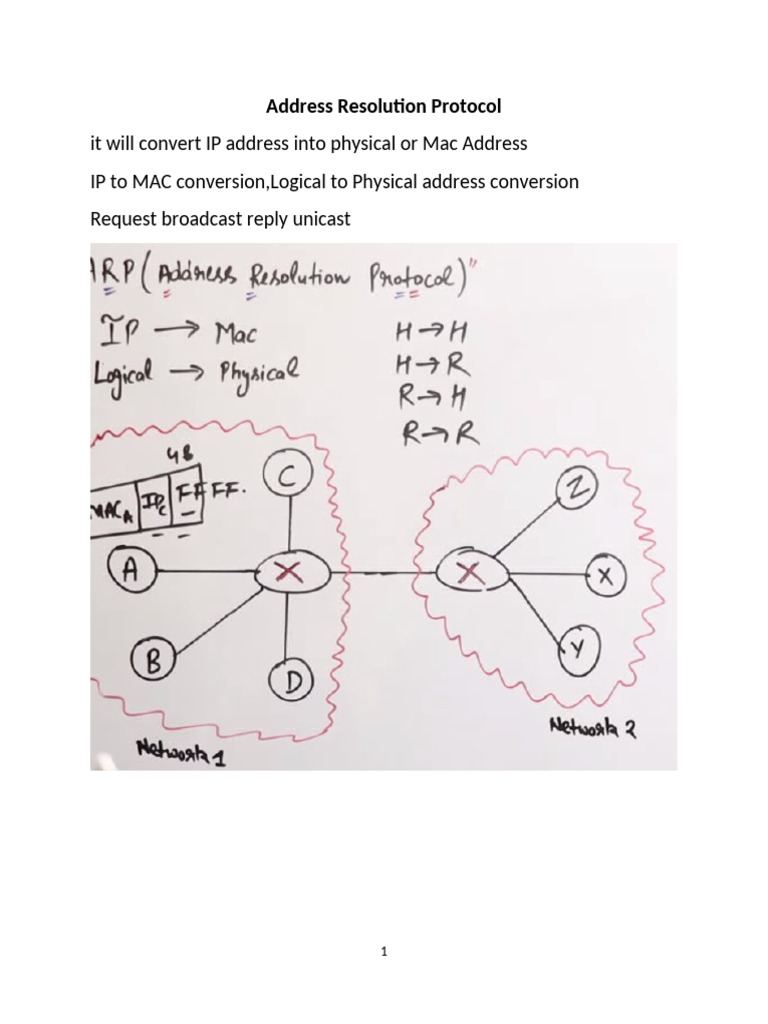 Address Resolution Protocol
it will convert IP address into physical or Mac Address
IP to MAC conversion,Logical to Physical address conversion
Request broadcast reply unicast
ARP (Address Resolution Protocol)"
IP → Mac
H → H
Logical → Physical
H → R
R → H
R → R
4B
C
Z
MAC_A IP_C FF FF.
A
X
X
X
B
D
Y
Network 1
Network 2
1